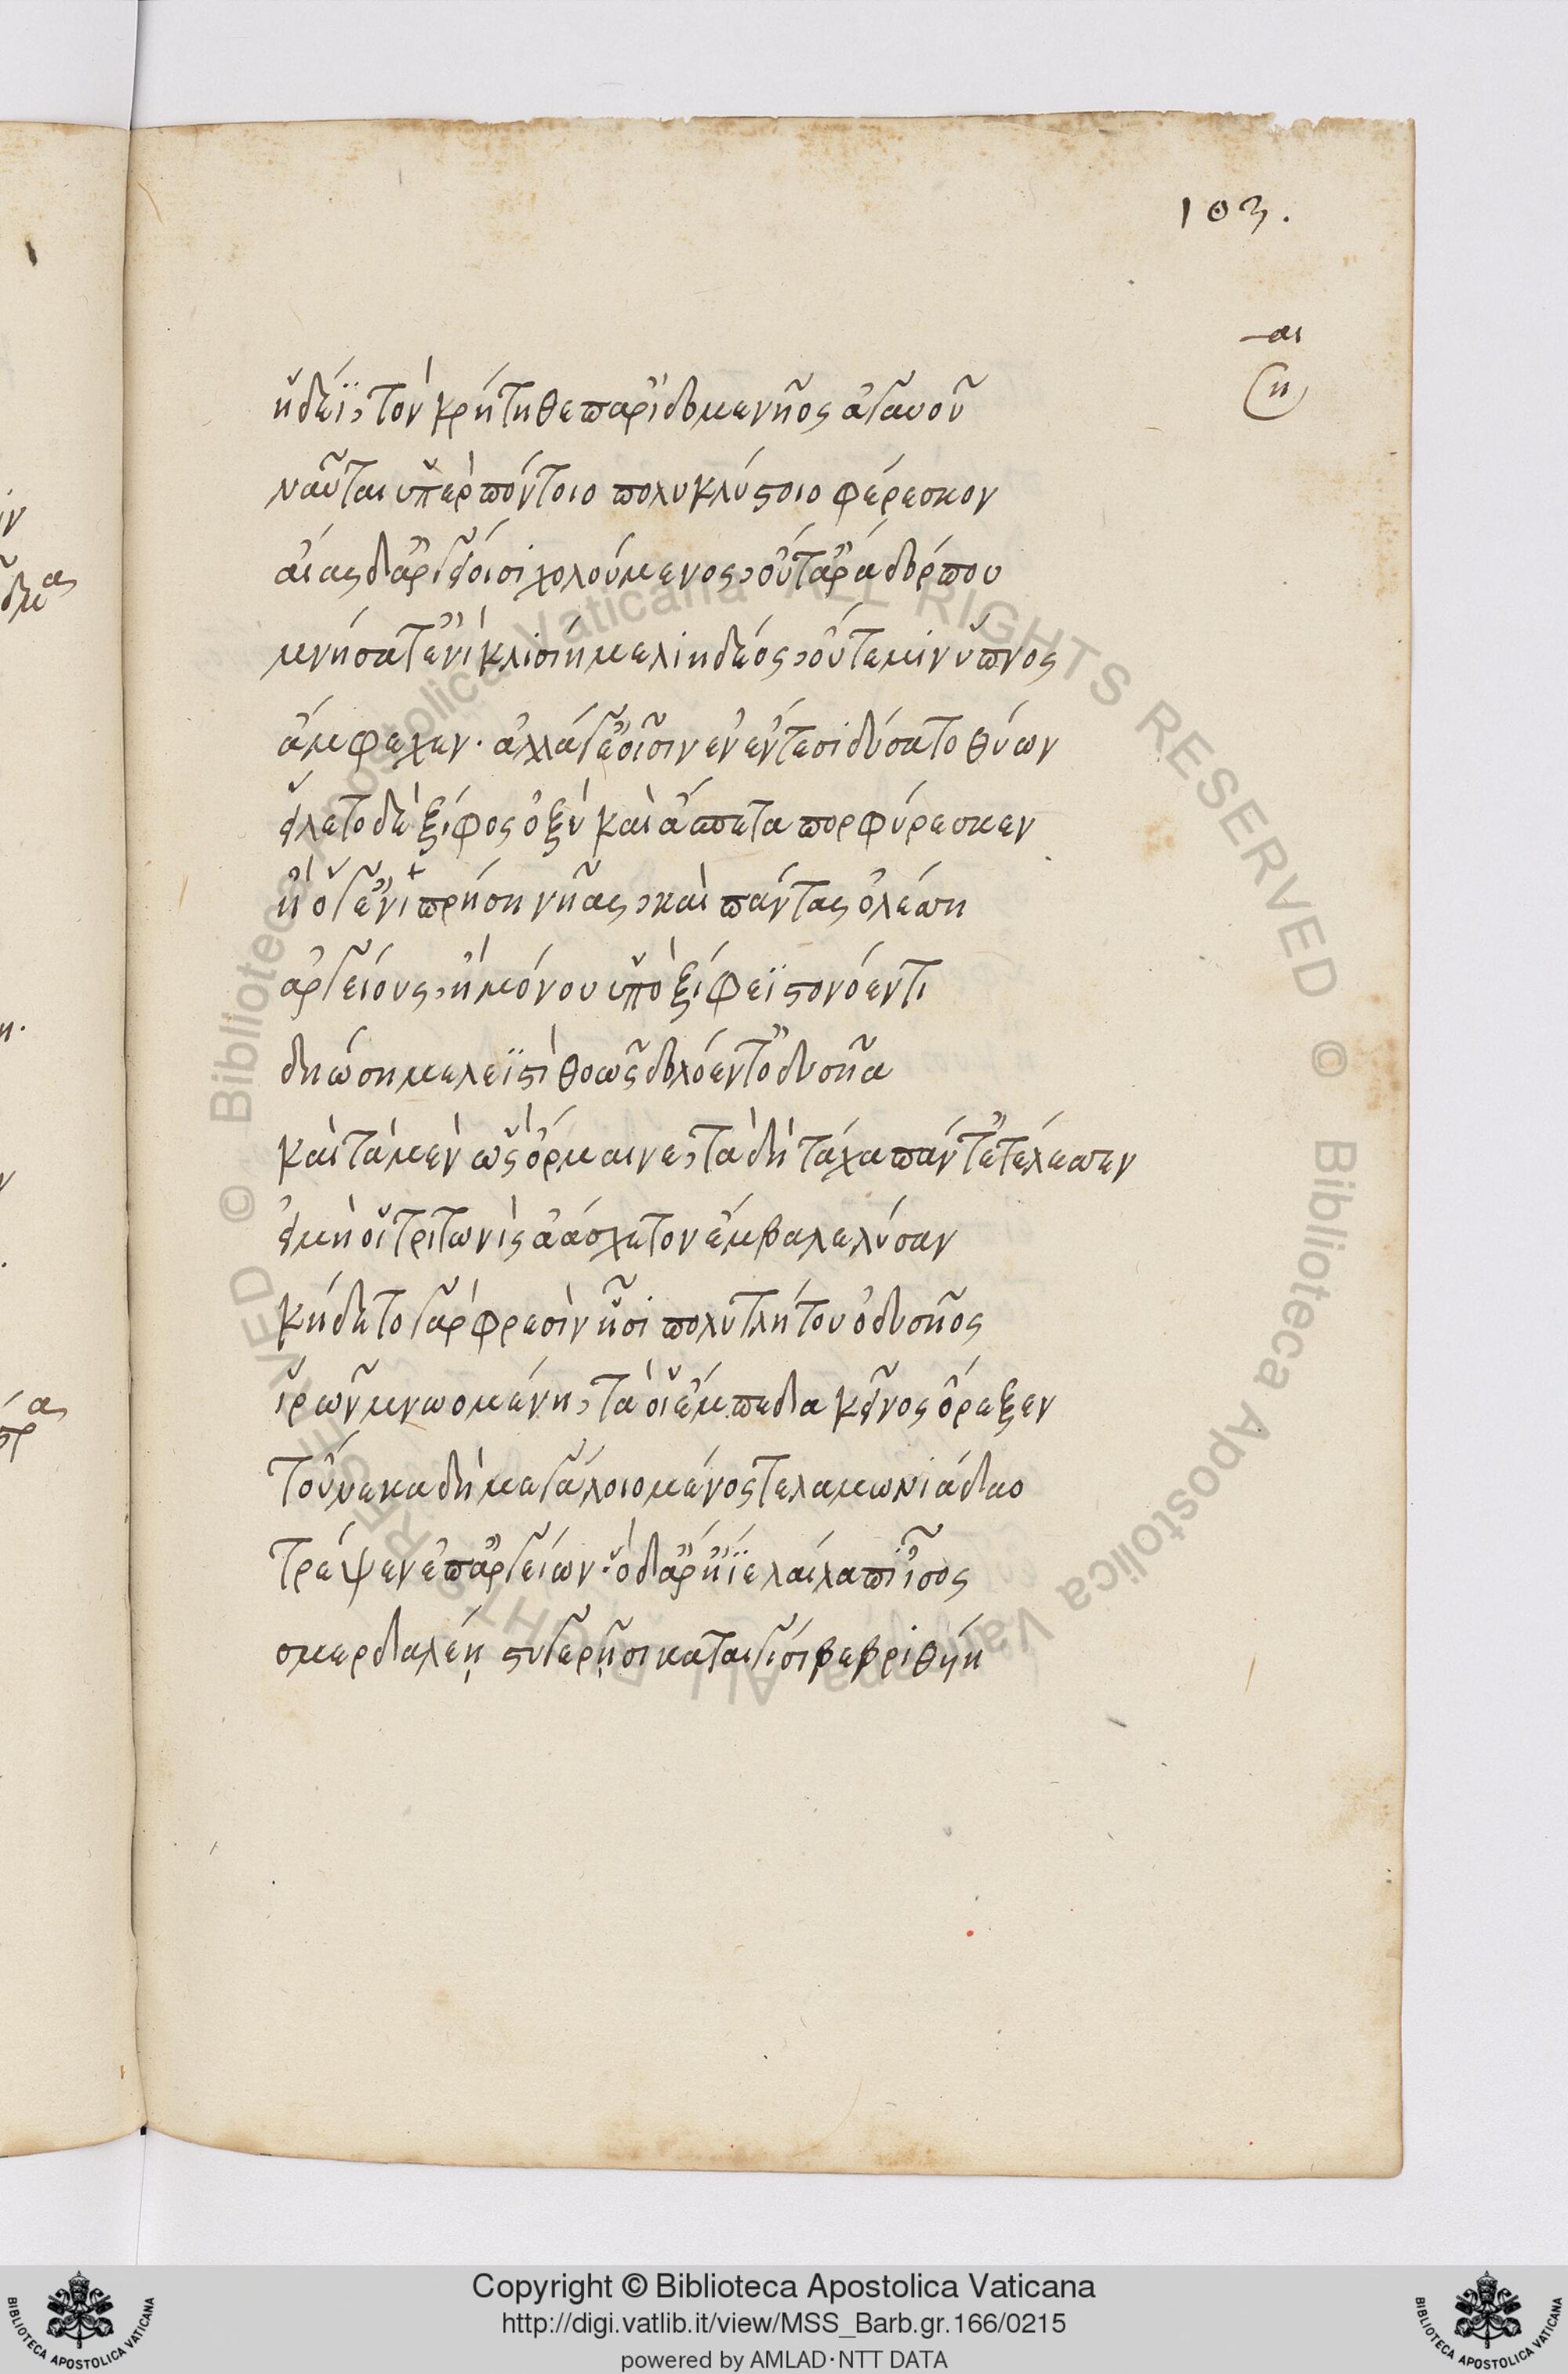 103.
αι
η
ἡδέϊ, τὸν κρήτηθε παρ' ἰδομενῆος ἀγαυοῦ
ναῦται ὑπὲρ πόντοιο πολυκλύστοιο φέρεσκον
αἴας δ' ἀργείοισι χολούμενος, οὔτ' ἄρα δόρπου
μνήσατ' ἐνὶ κλισίη μελιηδέος, οὔτε μιν ὕπνος
ἄμφεχεν. ἀλλά γ' ἑοῖσιν ἐν ἔντεσι δύσατο θύων
εἵλετο δὲ ξίφος ὀξὺ καὶ ἄσπετα πορφύρεσκεν
ἢ ὅγ' ἐνιπρήση νῆας, καὶ πάντας ὀλέσση
ἀργείους, ἢ μόνου ὑπὸ ξίφεϊ στονόεντι
δηώση μελεϊστὶ θοῶς δολόεντ' ὀδυσῆα
καὶ τὰ μὲν ὣς ὅρμαινε, τὰ δὴ τάχα πάντ' ἐτέλεσσεν
εἰ μὴ οἱ τριτωνὶς ἀάσχετον ἔμβαλε λύσαν
κήδετο γὰρ φρεσὶν ᾗσι πολυτλήτου ὀδυσῆος
ἱρῶν μνωομένη, τὰ οἱ ἔμπεδα κεῖνος ὄρεξεν
τοὔνεκα δὴ μεγάλοιο μένος τελαμωνιάδαο
τρέψεν ἐπ' ἀργείων. ὁ δ' ἄρ' ἤϊε λαίλαπι ἶσος
σμερδαλέῃ στυγερῇσι καταιγίσι βεβριθηίη
Copyright © Biblioteca Apostolica Vaticana
http://digi.vatlib.it/view/MSS_Barb.gr.166/0215
powered by AMLAD·NTT DATA